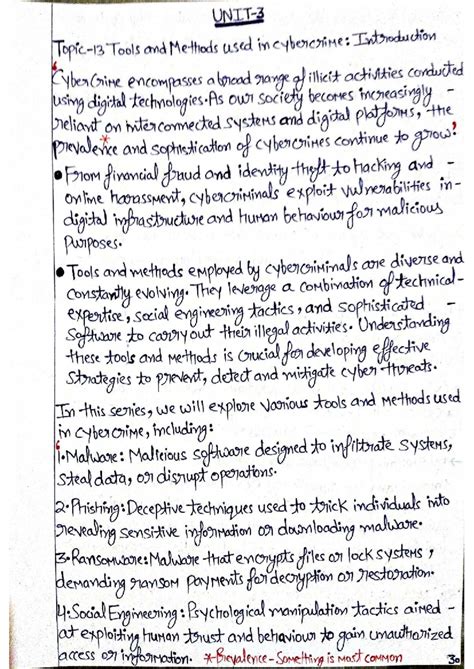 UNIT-3
Topic-13 Tools and Methods used in cybercrime: Introduction
"Cybercrime encompasses a broad range of illicit activities conducted
using digital technologies. As our society becomes increasingly -
reliant on interconnected systems and digital platforms, the
*
prevalence and sophistication of cybercrimes continue to grow."
• From financial fraud and identity theft to hacking and -
online harassment, cybercriminals exploit vulnerabilities in-
digital infrastructure and Human behaviour for malicious
Purposes.
• Tools and methods employed by cybercriminals are diverse and
constantly evolving. They leverage a combination of technical-
expertise, social engineering tactics, and sophisticated -
Software to carry out their illegal activities. Understanding
these tools and Methods is crucial for developing effective
Strategies to prevent, detect and mitigate cyber threats.
In this series, we will explore various tools and Methods used
in cybercrime, including:
1. Malware: Malicious software designed to infiltrate systems,
steal data, or disrupt operations.
2. Phishing: Deceptive techniques used to trick individuals into
revealing sensitive information or downloading malware.
3. Ransomware: Malware that encrypts files or lock systems,
demanding ransom payments for decryption or restoration.
4. Social Engineering: Psychological manipulation tactics aimed -
at exploiting human trust and behaviour to gain unauthorized
access or information. *Prevalence - Something is most common
30